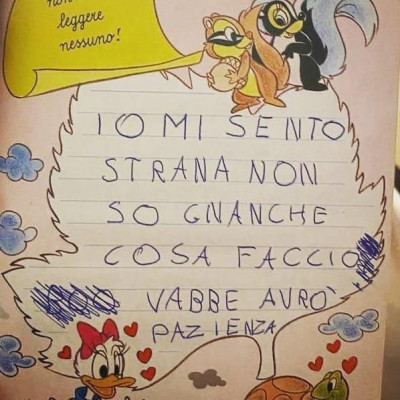 non
leggere
nessuno!
IO MI SENTO
STRANA NON
SO GNANCHE
COSA FACCIO
VABBE AVRO'
PAZIENZA